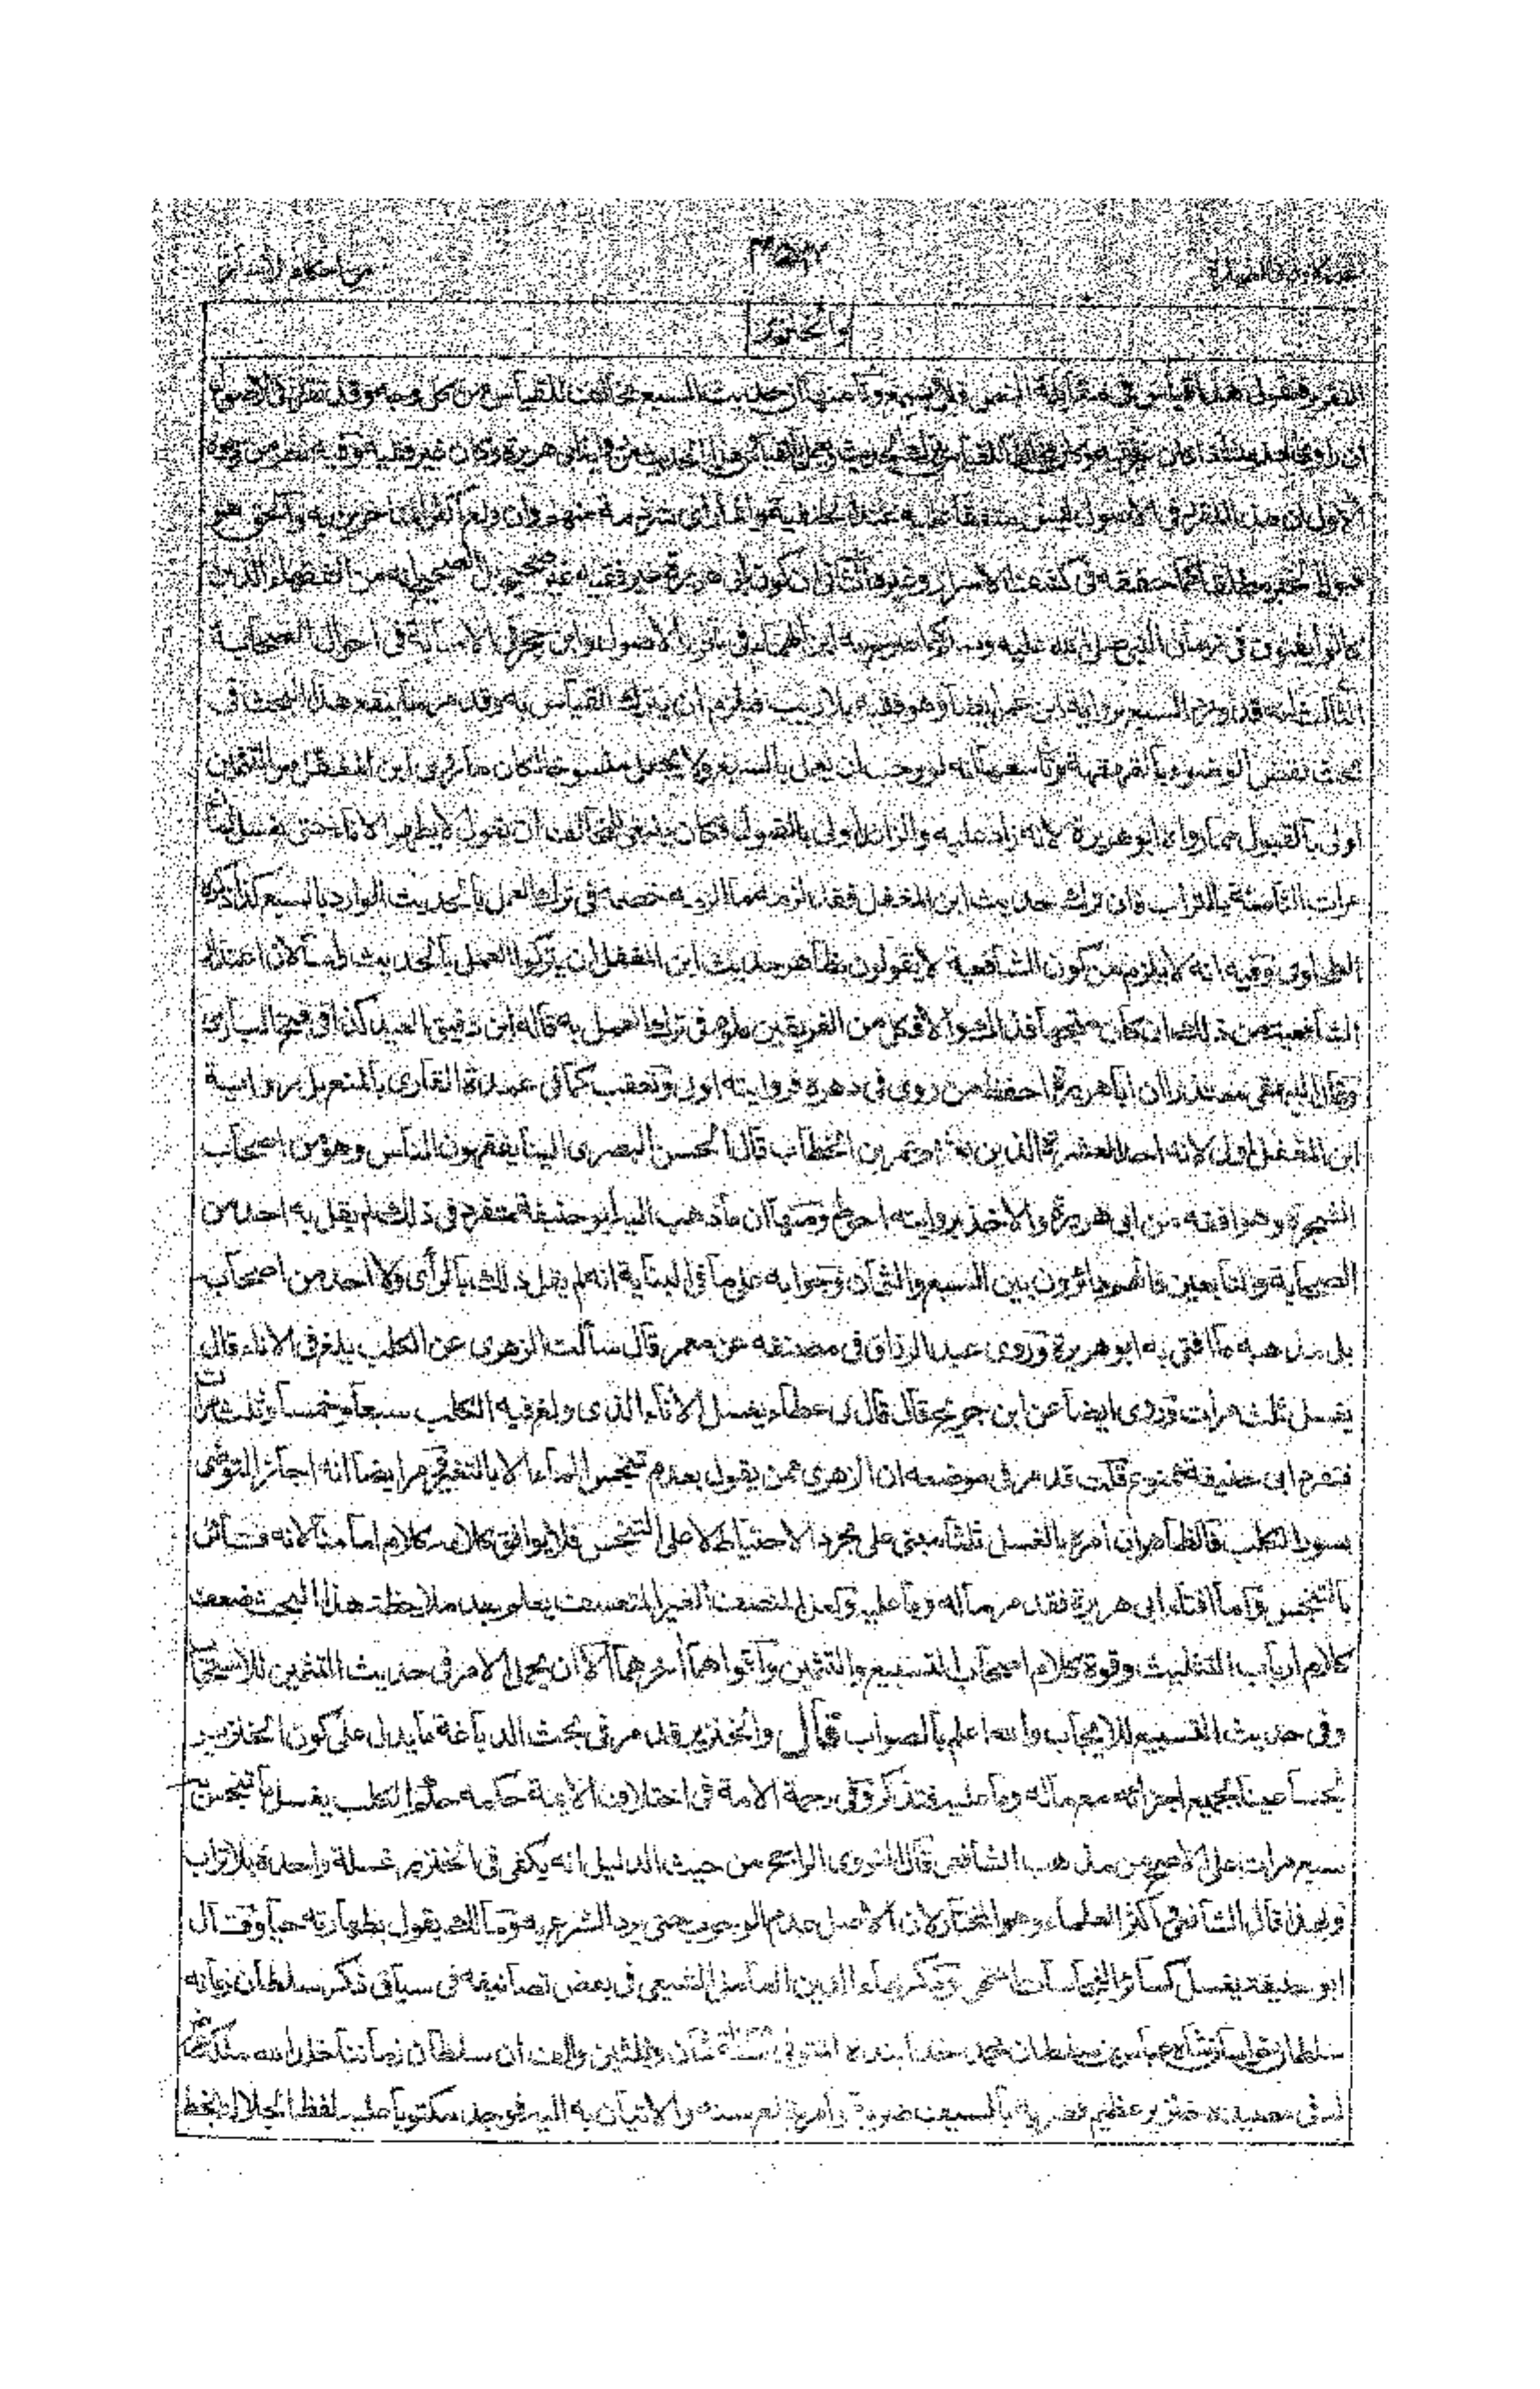 والخنزير
المقرر فنقول هذا قياس في مقابلة النص فلا يسمع وثامنها ان حديث السبع مخالف للقياس من كل وجه وقد تقرر في الاصول
الاول ان هذا المقرر في الاصول ليس متفقا عليه عند الحنفية وانما رأى شرذمة منهم وان ولع اكثر المتاخرين به والحق هو
قبول الخبر مطلقا كما حققه في كشف الاسرار وغيره الثاني ان كون ابي هريرة غير فقيه غير صحيح بل الصحيح انه من الفقهاء الذين
كانوا يفتون في زمان النبي صلى الله عليه وسلم كما صرح به ابن الهمام في تحرير الاصول وابن حجر في الاصابة في احوال الصحابة
الثالث انه قد ورد السبع برواية ابن عمر ايضا وهو فقيه بلا ريب فيلزم ان يترك القياس به وقد مر ما ينفع هذا البحث في
بحث نقض الوضوء بالقهقهة وتاسعها انه لو وجب ان يعمل بالسبع ولا يجعل منسوخا لكان ما روى ابن المغفل من التثمين
اولى بالقبول مما رواه ابو هريرة لانه زاد عليه والزائد اولى بالقبول فكان ينبغي للمخالف ان يقول لا يطهر الاناء حتى يغسل ثمان
مرات الثامنة بالتراب فان ترك حديث ابن المغفل فقد لزمه ما الزمه خصمه في ترك العمل بالحديث الوارد بالسبع كذا ذكره
الطحاوي وفيه انه لا يلزم من كون الشافعية لا يقولون بظاهر حديث ابن المغفل ان يتركوا العمل بالحديث راسا لان اعتذار
الشافعية من ذلك ان كان متجها فذاك والا فكل من الفريقين ملوم في ترك العمل به قاله ابن دقيق العيد كذا في فتح الباري
وقال البيهقي معتذرا ان ابا هريرة احفظ من روى في دهره فروايته اولى وتعقب كما في عمدة القاري بالمنع بل رواية
ابن المغفل اولى لانه احد العشرة الذين بعثهم عمر بن الخطاب قال الحسن البصري الينا يفقهون الناس وهو من اصحاب
الشجرة وهو افقه من ابي هريرة والاخذ بروايته احوط ومنها ان ما ذهب اليه ابو حنيفة متفرد في ذلك لم يقل به احد من
الصحابة والتابعين فانهم دائرون بين السبع والثمان وجوابه على ما في البناية انه لم يقل ذلك بالرأى ولا احد من اصحابه
بل مذهبه ما افتى به ابو هريرة وروى عبد الرزاق في مصنفه عن معمر قال سألت الزهري عن الكلب يلغ في الاناء قال
يغسل ثلث مرات وروى ايضا عن ابن جريج قال قال لي عطاء يغسل الاناء الذي ولغ فيه الكلب سبعا وخمسا وثلث مرات
فتفرد ابي حنيفة ممنوع قلت قد مر في موضعه ان الزهري ممن يقول بعدم تنجس الماء الا بالتغير ومر ايضا انه اجاز التوضى
بسور الكلب فالظاهر ان امره بالغسل ثلثا مبنى على مجرد الاحتياط لا على التنجس فلا يوافق كلامه كلام امامنا لانه قائل
بالتنجس واما افتاء ابي هريرة فقد مر ماله وما عليه ولعل المنصف الغير المتعسف يعلم بعد ملاحظة هذا البحث ضعف
كلام ارباب التثليث وقوة كلام اصحاب التسبيع والتثمين واقواهما آخرهما الا ان يحمل الامر في حديث التثمين للاستحباب
وفي حديث التسبيع للايجاب والله اعلم بالصواب قال والخنزير قد مر في بحث الدباغة ما يدل على كون الخنزير
نجسا عينا بجميع اجزائه مع ماله وما عليه فتذكر وفي رحمة الامة في اختلاف الائمة حكمه حكم الكلب يغسل ما تنجس
سبع مرات على الاصح من مذهب الشافعي قال النووي الراجح من حيث الدليل انه يكفى في الخنزير غسلة واحدة بلا تراب
وبهذا قال الشافعي اكثر العلماء وهو المختار لان الاصل عدم الوجوب حتى يرد الشرع به ومالك يقول بطهارته حيا وقال
ابو حنيفة يغسل كسائر النجاسات انتهى وذكر بهاء الدين العاملي الشيعي في بعض تصانيفه في سياق ذكر سلطان زمانه
سلطان شاه عباس بن سلطان محمد خدا بنده المتوفى سنة ثمان وثلثين والف ان سلطان زماننا خلد الله ملكه
في مصيده خنزير عظيم فضربه بالسيف ضربة وامر بقلع سنه والاتيان به اليه فوجد مكتوبا عليه لفظ الجلالة بخط